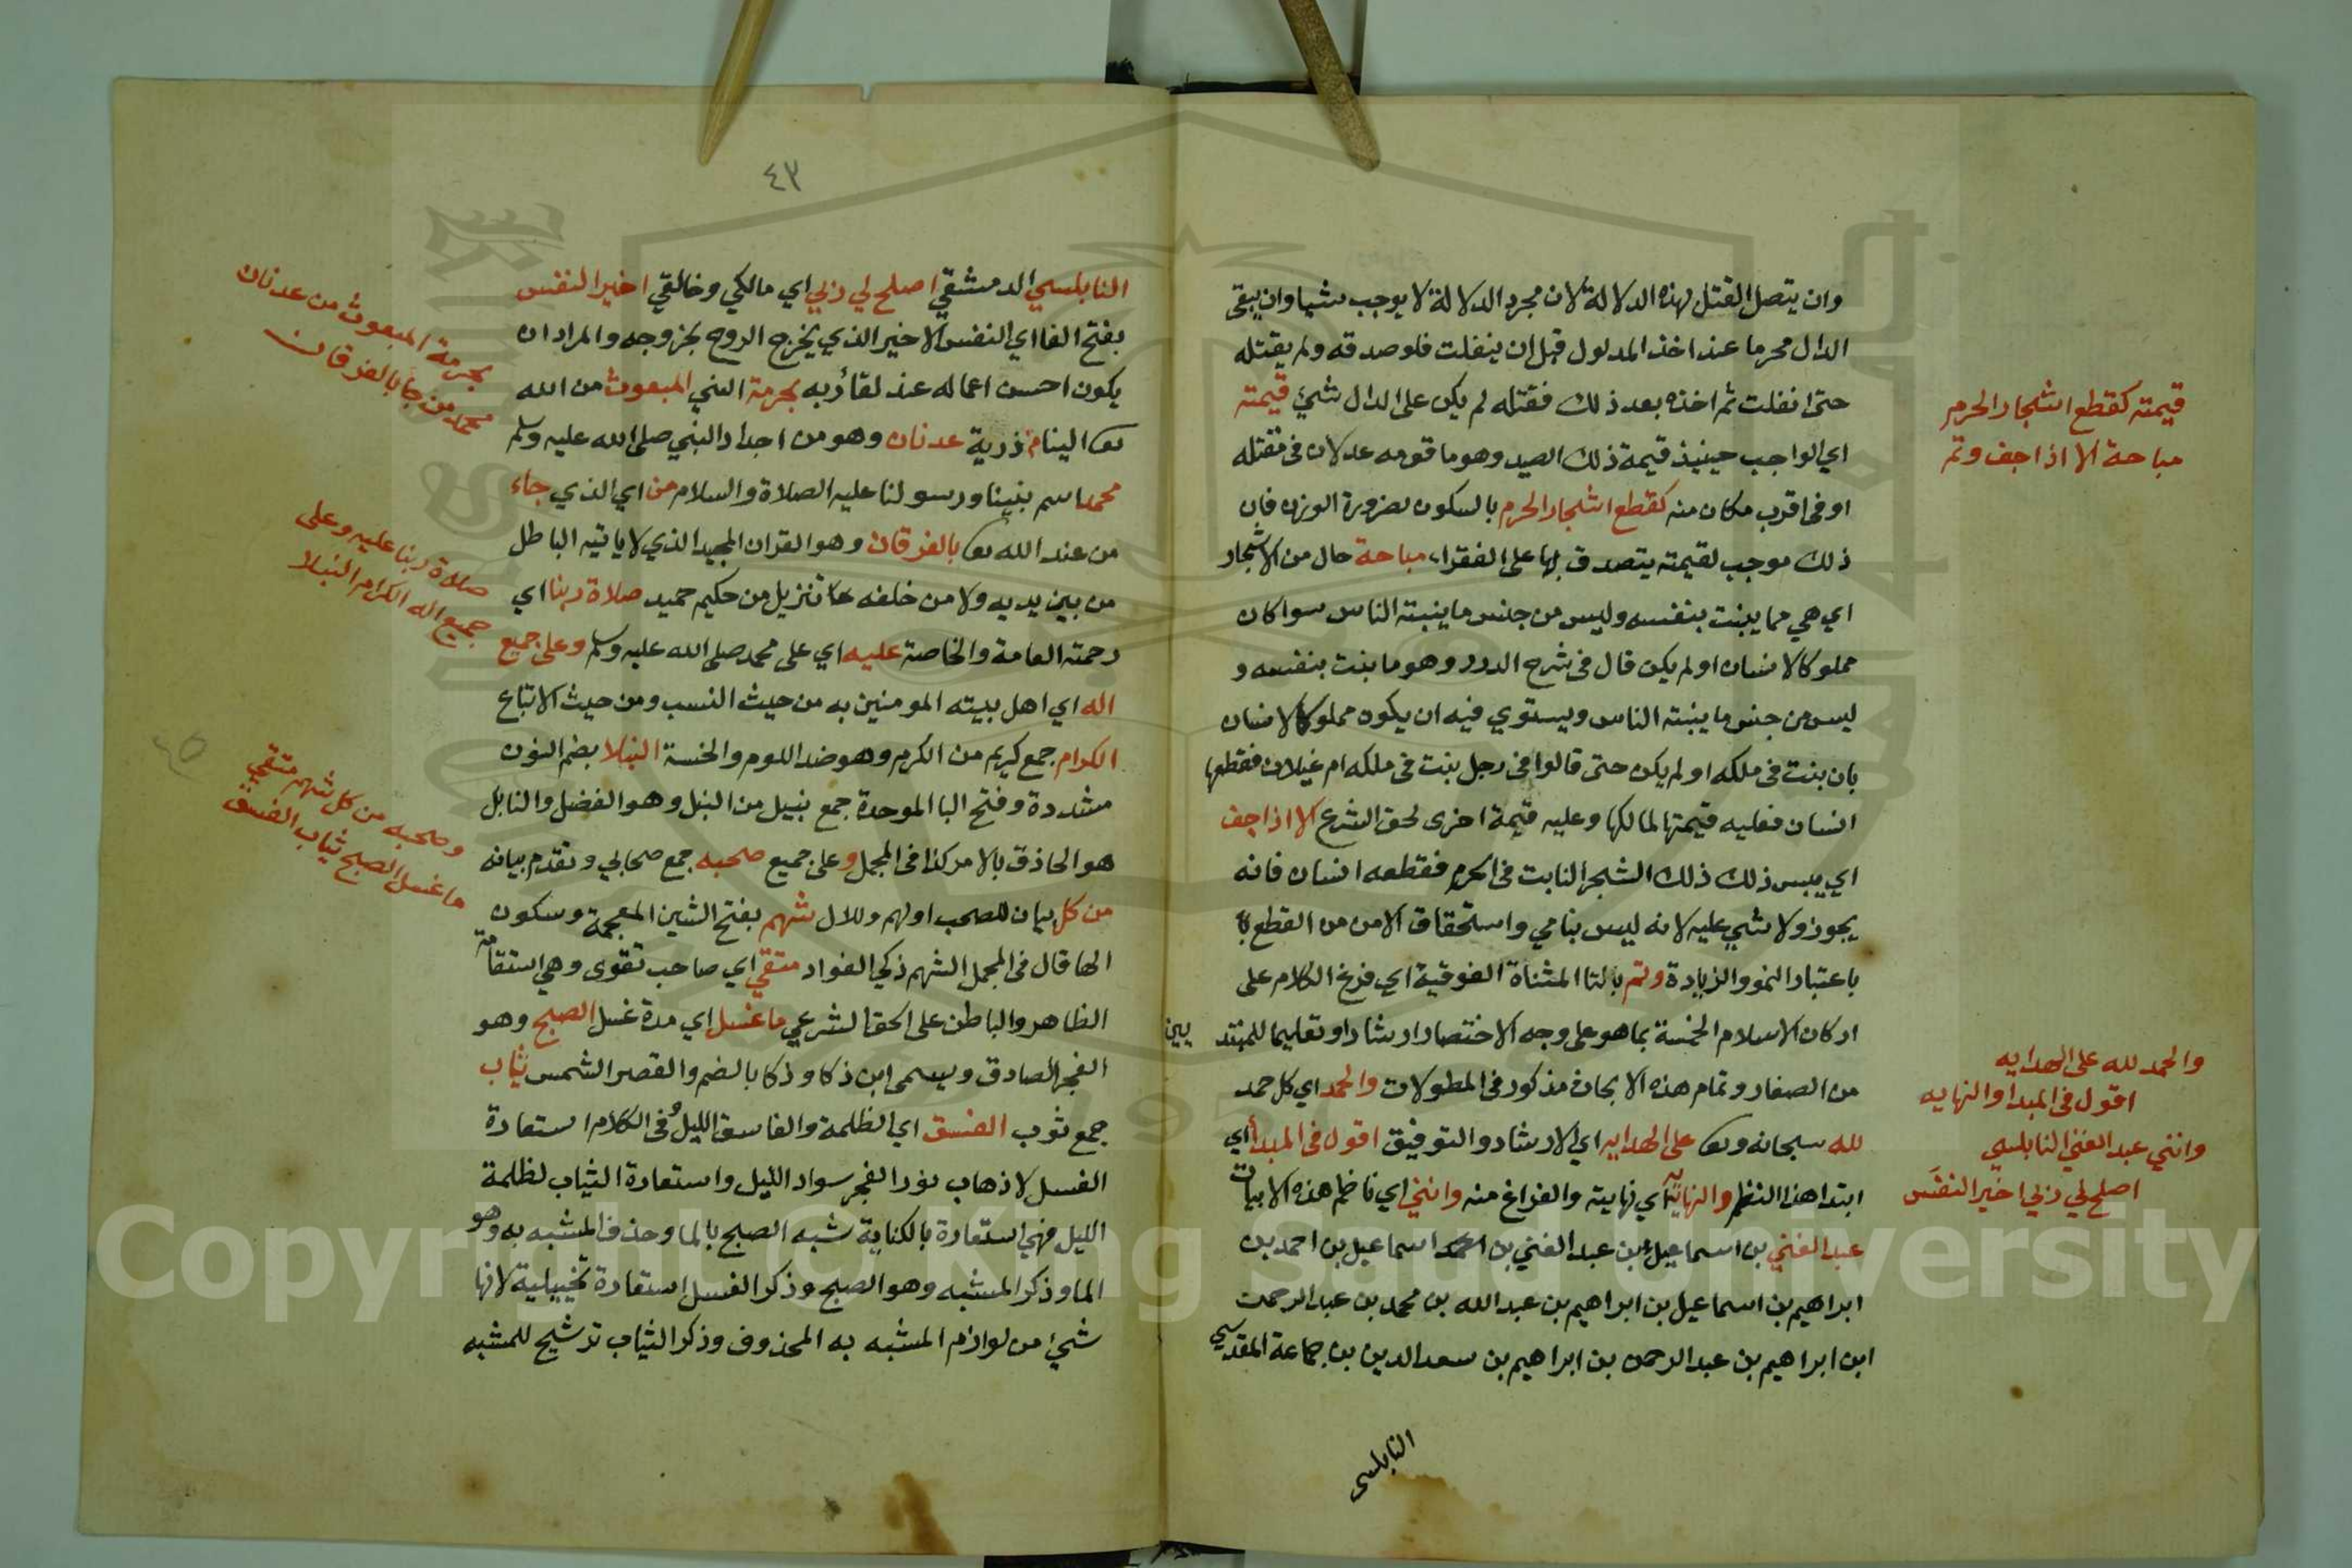 وان يتصل القتل بهذه الدلالة لان مجرد الدلالة لا يوجب شيا وان يبقى
الدال محرما عند اخذ المدلول قبل ان ينفلت فلو صدقه ولم يقتله
حتى انفلت ثم اخذه بعد ذلك فقتله لم يكن على الدال شيئ قيمته
اي الواجب حينيذ قيمة ذلك الصيد وهو ما قومه عدلان في مقتله
او في اقرب مكان منه كقطع اشجار الحرم بالسكون لضرورة الوزن فان
ذلك موجب لقيمته يتصدق بها على الفقراء مباحة حال من الاشجار
اي هي مما ينبت بنفسه وليس من جنس ما ينبته الناس سوا كان
مملوكا لانسان او لم يكن قال في شرح الدرر وهو ما نبت بنفسه و
ليس من جنس ما ينبته الناس ويستوي فيه ان يكون مملوكا لانسان
بان نبت في ملكه او لم يكن حتى قالوا في رجل نبت في ملكه ام غيلان فقطعها
انسان فعليه قيمتها لمالكها وعليه قيمة اخرى لحق الشرع الا اذا جف
اي يبس ذلك ذلك الشجر النابت في الحرم فقطعه انسان فانه
يجوز ولا شي عليه لانه ليس بنامي واستحقاق الامن من القطع
باعتبار النمو والزيادة وتم بالتا المثناة الفوقية اي فرغ الكلام على
اركان الاسلام الخمسة بما هو على وجه الاختصار ارشادا وتعليما للمبتد يين
من الصغار وتمام هذه الابحاث مذكور في المطولات والحمد اي كل حمد
لله سبحانه وتعا على الهدايه اي الارشاد والتوفيق اقول في المبدأ اي
ابتدا هذا النظم والنهايه اي نهايته والفراغ منه وانني اي ناظم هذه الابيات
عبد الغني بن اسماعيل بن عبد الغني بن اسماعيل بن احمد بن
ابراهيم بن اسماعيل بن ابراهيم بن عبد الله بن محمد بن عبد الرحمن
ابن ابراهيم بن عبد الرحمن بن ابراهيم بن سعد الدين بن جماعة المقدسي
النابلسي
قيمته كقطع اشجار الحرم
مباحة الا اذا جف وتم
والحمد لله على الهدايه
اقول في المبدا والنهايه
وانني عبد الغني النابلسي
اصلح لي ربي اخير النفس
٤٣
النابلسي الدمشقي اصلح لي ربي اي مالكي وخالقي اخير النفس
بفتح الفا اي النفس الاخير الذي يخرج الروح بخروجه والمراد ان
يكون احسن اعماله عند لقا ربه بحرمة النبي المبعوث من الله
تعا الينا من ذرية عدنان وهو من اجداد النبي صلى الله عليه وسلم
محمد اسم نبينا ورسولنا عليه الصلاة والسلام من اي الذي جاء
من عند الله تعا بالفرقان وهو القران المجيد الذي لا ياتيه الباطل
من بين يديه ولا من خلفه تنزيل من حكيم حميد صلاة ربنا اي
رحمته العامة والخاصة عليه اي على محمد صلى الله عليه وسلم وعلى جميع
اله اي اهل بيته المومنين به من حيث النسب ومن حيث الاتباع
الكرام جمع كريم من الكرم وهو ضد اللوم والخسة النبلا بضم النون
مشددة وفتح البا الموحدة جمع نبيل من النبل وهو الفضل والنابل
هو الحاذق بالامر كذا في المجمل وعلى جميع صحبه جمع صحابي وتقدم بيانه
من كل بيان للصحب اولهم وللال شهم بفتح الشين المعجمة وسكون
الها قال في المجمل الشهم ذكي الفواد متقي اي صاحب تقوى وهي استقامة
الظاهر والباطن على الحق الشرعي ما غسل اي مدة غسل الصبح وهو
الفجر الصادق ويسمى ابن ذكا وذكا بالضم والقصر الشمس ثياب
جمع ثوب الغسق اي الظلمة والغاسق الليل وفي الكلام استعارة
الغسل لاذهاب نور الفجر سواد الليل واستعارة الثياب لظلمة
الليل فهي استعارة بالكناية شبه الصبح بالما وحذف المشبه به وهو
الما وذكر المشبه وهو الصبح وذكر الغسل استعارة تخييلية لانها
شيئ من لوازم المشبه به المحذوف وذكر الثياب ترشيح للمشبه
بحرمة المبعوث من عدنان
محمد من جا بالفرقان
صلاة ربنا عليه وعلى
جميع اله الكرام النبلا
وصحبه من كل شهم متقي
ما غسل الصبح ثياب الغسق
٤٥
Copyright © King Saud University